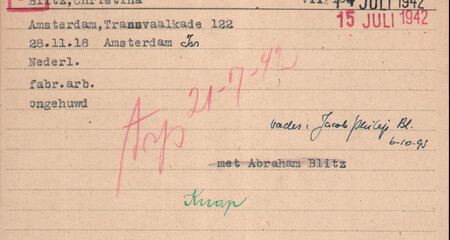 Blitz, Christina
14 JULI 1942
Amsterdam, Transvaalkade 122
15 JULI 1942
28.11.18 Amsterdam
Nederl.
fabr.arb.
ongehuwd
21-7-42
vader: Jacob Philip Bl.
6-10-95
met Abraham Blitz
Knap